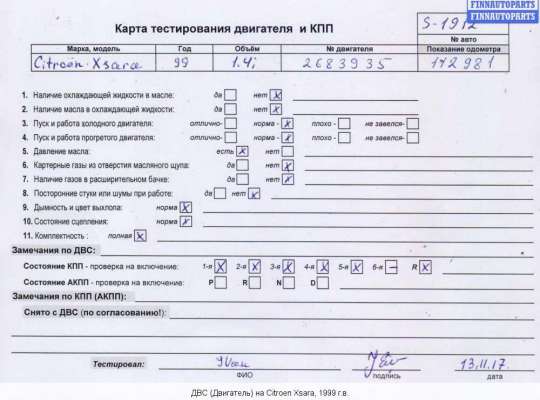 FINNAUTOPARTS
FINNAUTOPARTS
Карта тестирования двигателя и КПП
S-1912
№ авто
Марка, модель Год Объём № двигателя Показание одометра
Citroën Xsara 99 1.4i 2683935 172981
1. Наличие охлаждающей жидкости в масле: да нет x
2. Наличие масла в охлаждающей жидкости: да нет x
3. Пуск и работа холодного двигателя: отлично- норма - x плохо - не завелся-
4. Пуск и работа прогретого двигателя: отлично- норма - x плохо - не завелся-
5. Давление масла: есть x нет
6. Картерные газы из отверстия масляного щупа: да нет x
7. Наличие газов в расширительном бачке: да нет x
8. Посторонние стуки или шумы при работе: да нет x
9. Дымность и цвет выхлопа: норма x
10. Состояние сцепления: норма x
11. Комплектность : полная x
Замечания по ДВС:
Состояние КПП - проверка на включение: 1-я x 2-я x 3-я x 4-я x 5-я x 6-я – R x
Состояние АКПП - проверка на включение: P R N D
Замечания по КПП (АКПП):
Снято с ДВС (по согласованию!):
Тестировал: 13.11.17.
ФИО подпись дата
ДВС (Двигатель) на Citroen Xsara, 1999 г.в.